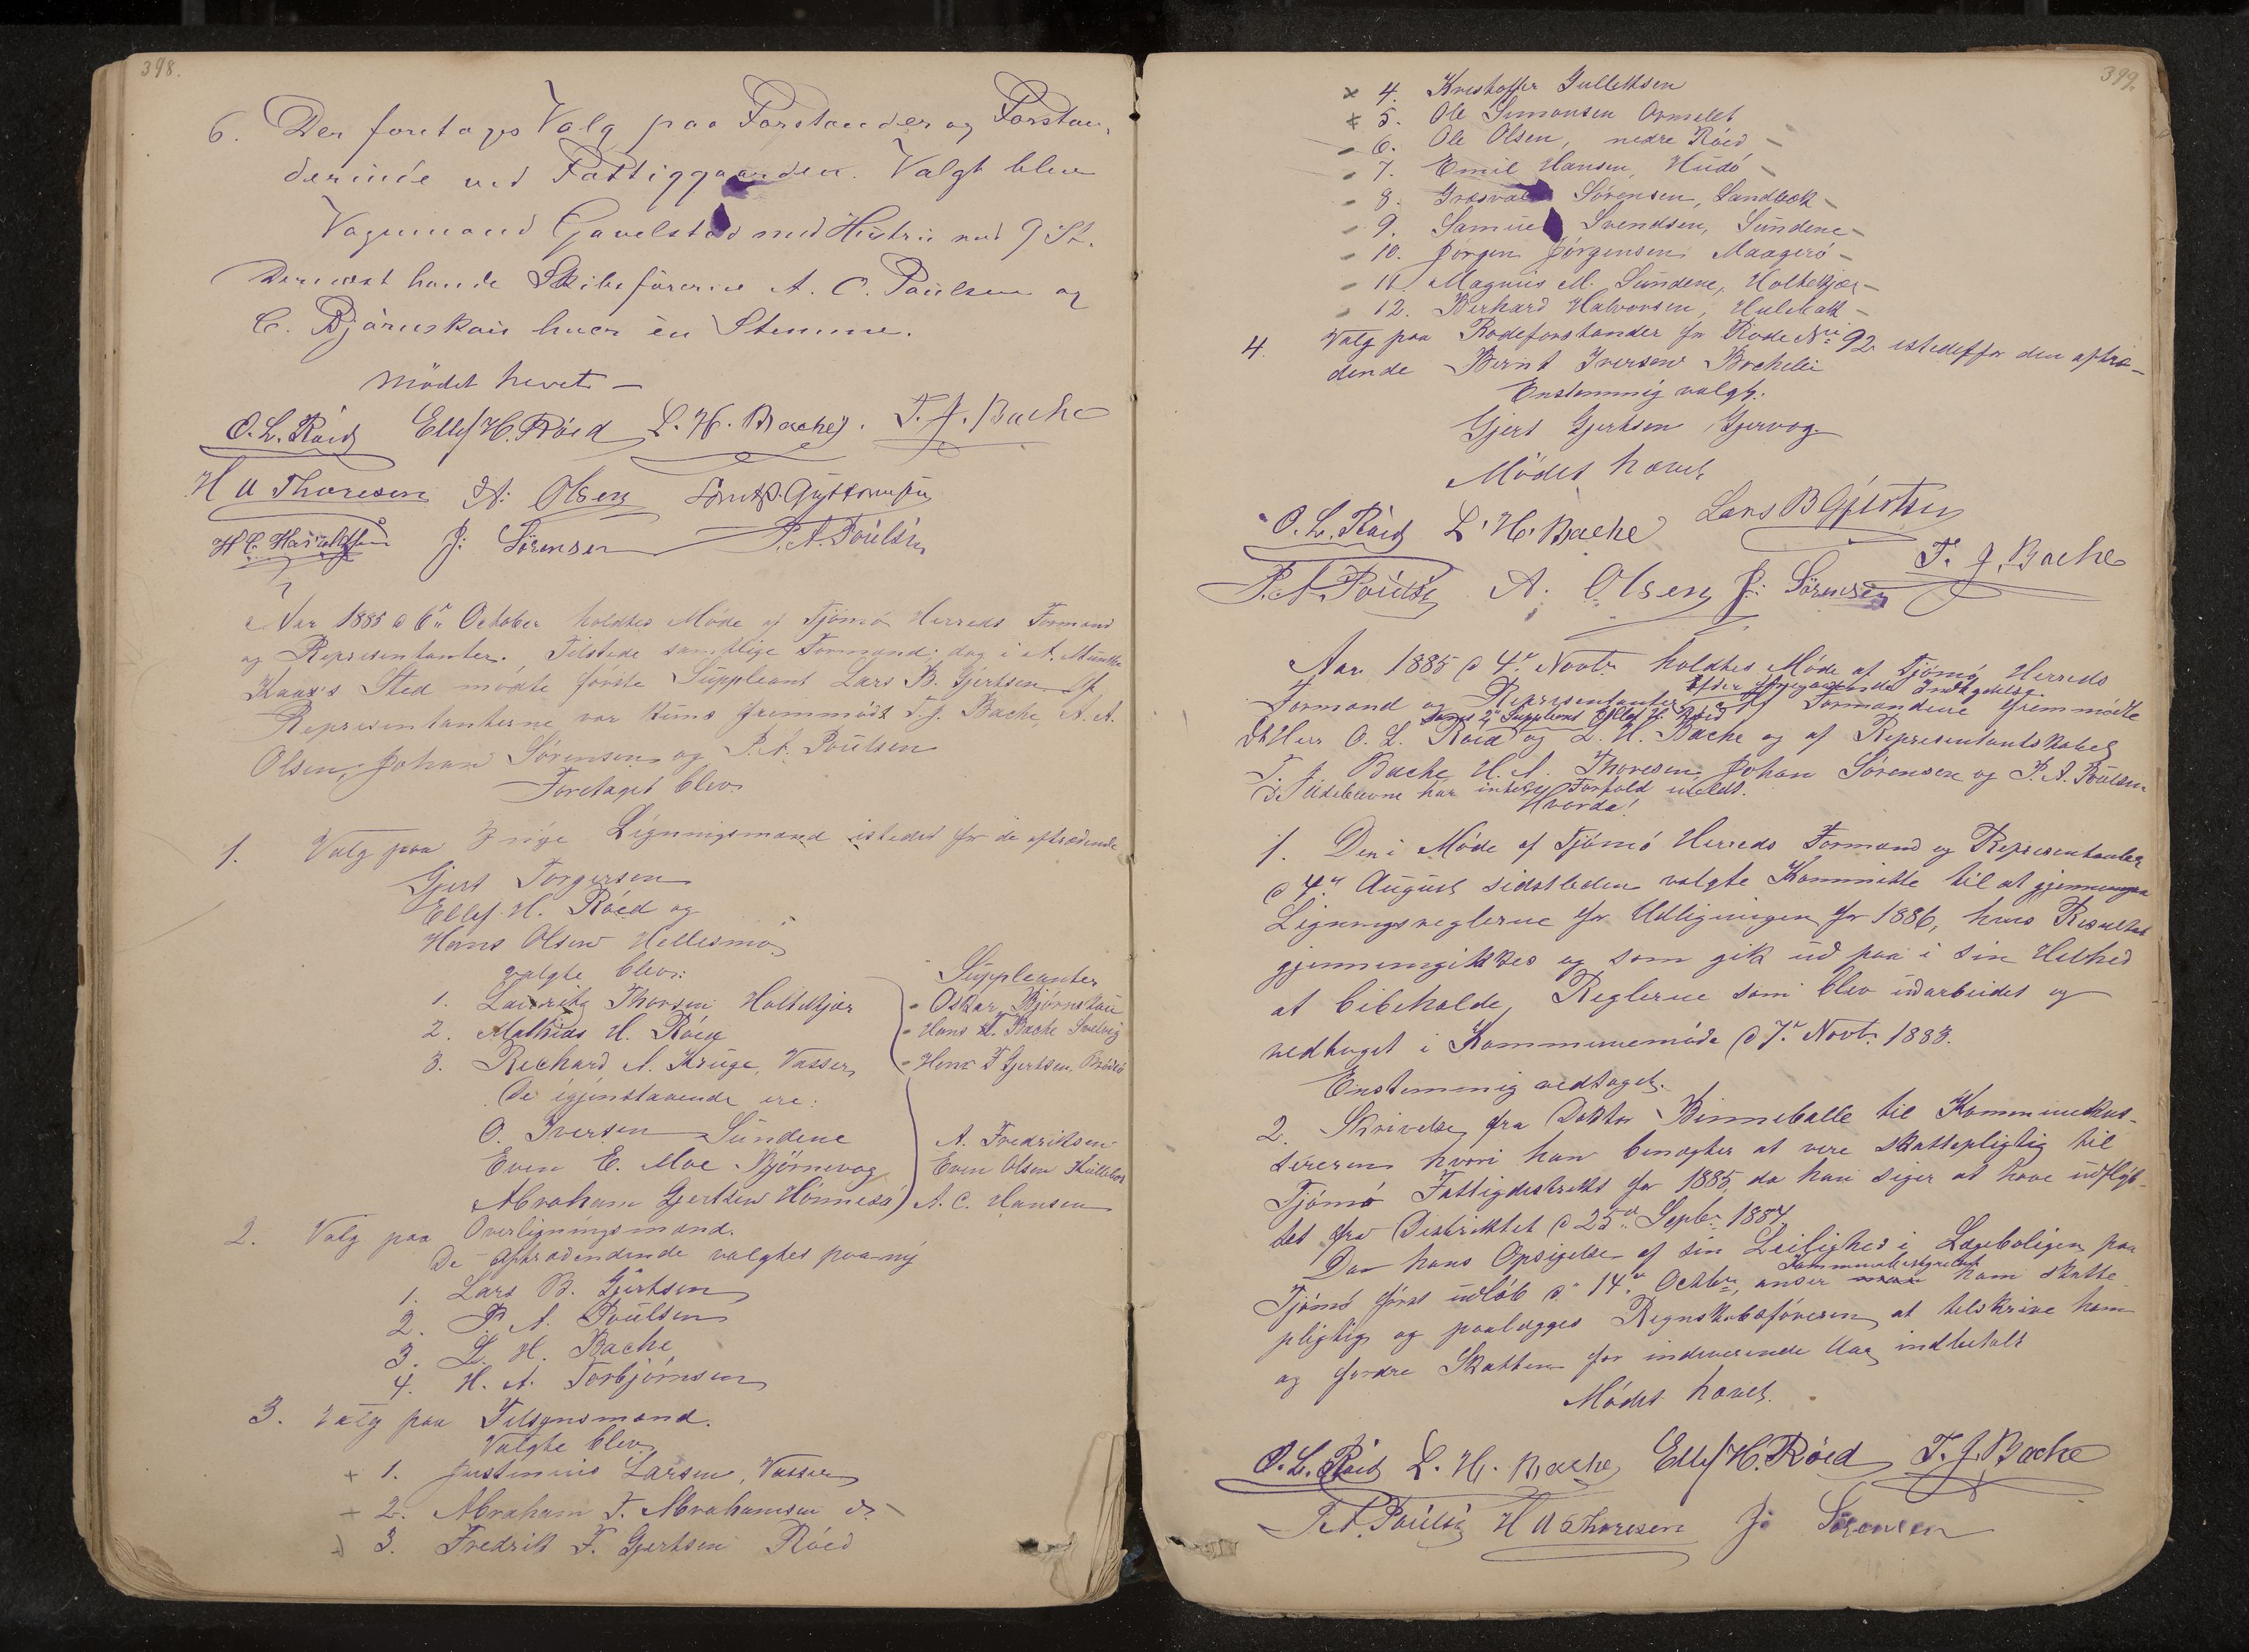 398.
6. Der foretages Valg paa Forstander og Forstan-
derinde ved Fattiggaarden. Valgt blev
Vognmand Gavelstad med Hustru med 9 St.
Dernæst havde Skibsförerne A. C. Paulsen og
C. Björnskau hver én Stemme.
Mödet hevet
O. L. Röed Ellef H. Röed L. H. Bache. T. J. Bache
H A Thoresen A. Olsen
J: Sörensen P. A. Poulsen
Aar 1885 d 6te October holdtes Möde af Tjömö Herreds Formænd
og Representanter. Tilstede samtlige Formænd, dog i A. Munthe
Kaas's Sted mödte förste Suppleant Lars B. Gjertsen. Af
Representanterne var kuns fremmödt T. J. Bache, A. A.
Olsen, Johan Sörensen og P. A. Poulsen
Foretaget blev
1. Valg paa 3 nÿe Ligningsmænd istedet for de aftrædende
Gjert Torgersen
Ellef H. Röed og
Hans Olsen Hellesmö
valgte blev: Suppleanter
1. Lauritz Thorsen Holtekjær - Oskar Björnskau
2. Mathias H. Röed - Hans A. Bache Sælvig
3. Richard A. Kruge, Vasser - Henr F Gjertsen,
De igjenstaaende ere:
O. Iversen Sundene A. Fredriksen
Even E. Moe Björnevog Even Olsen
Abraham Gjertsen Hönnesö A. C. Hansen
2. Valg paa Overligningsmænd.
De aftrædendende valgtes paa nÿ
1. Lars B. Gjertsen
2. P. A. Poulsen
3. L. H. Bache
4. H. A. Torbjörnsen
3. Valg paa Tilsynsmænd.
Valgte blev
+ 1. Justinius Larsen, Vasser
+ 2. Abraham T. Abrahamsen
3. Fredrik F. Gjertsen Röed
399.
x 4. Kristoffer Gulliksen
+ 5. Ole Simonsen Ormelet
- 6. Ole Olsen, nedre Röed -
- 7. Emil Hansen, Hudö -
- 8. Sörensen, Sandbæk -
- 9. Samuel Svendsen, Sundene -
- 10. Jörgen Jörgensen Maagerö -
- 11. Magnus M. Sundene, Holtekjær -
- 12. Berhard Halvorsen, Hulebak -
4. Valg paa Rodeforstander for Rode No 92 istedetfor den aftræ-
dende Bernt Iversen
Enstemmig valgt.
Gjert Gjertsen Gjervog
Mödet hævet
O. L. Röed L. H. Bache Lars B Gjertsen
P. A. Poulsen A. Olsen J: Sörensen T. J. Bache
Aar 1885 d 4de Novbr holdtes Möde af Tjömö Herreds
Formænd og Representanter efter foregaaende Indkaldelse. Af Formændene fremmödte
samt 2den Suppleant Ellef H. Röed
DHrr O. L. Röed og L. H. Bache og af Representantskabet
T. J. Bache, H. A. Thoresen, Johan Sörensen og P. A. Poulsen
De Udeblevne har intet Forfald meldt.
Hvorda!
1. Den i Möde af Tjömö Herreds Formænd og Representanter
d 4de August sidstleden valgte Kommitte til at gjennemgaa
Ligningsreglerne for Udligningen for 1886, hvis Resultat
gjennemgikkes og som gik ud paa i sin Helhed
at bibeholde Reglerne som blev udarbeidet og
vedtaget i Kommunemöde d 7de Novbr 1883.
Enstemmig vedtaget.
2. Skrivelse fra Doktor Binneballe til Kommunekas-
sereren hvori han benægter at være skattepligtig til
Tjömö Fattigdistrikt for 1885, da han siger at have udflÿt-
tet fra Distriktet d 25de Septbr 1884.
Da hans Opsigelse af sin Leilighed i Lægeboligen paa
Tjömö först udlöb d. 14de Octbr, anser Kommunebestyrelsen ham skatte
pligtig og paalægges Regnskabsföreren at tilskrive ham
og fordre Skatten for indeværende Aar indbetalt
Mödet hævet.
O. L. Röed L. H. Bache Ellef H. Röed T. J. Bache
P. A. Poulsen H A Thoresen J: Sörensen